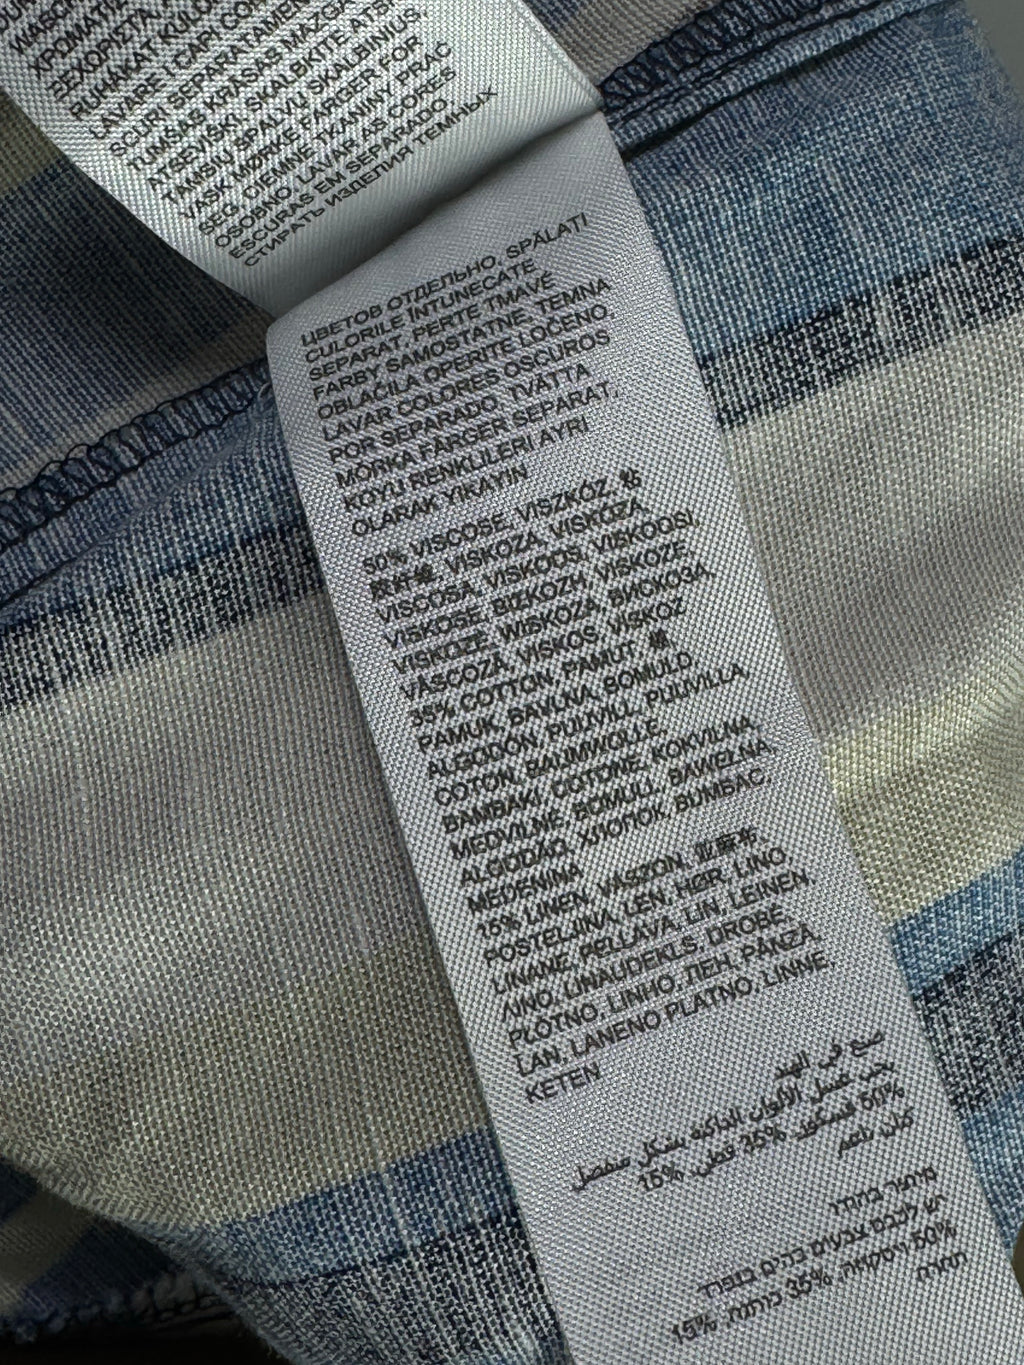 WASCH
ХРОМАТИ
ΞΕΧΩΡΙΣΤΑ
RUHÁKAT KÜLÖ
LAVARE I CAPI CO
SCURI SEPARATAMEN
TUMŠAS KRĀSAS MAZGĀ
ATSEVIŠĶI, SKALBKITE ATSK
TAMSIŲ SPALVŲ SKALBINIUS,
VASK MØRKE FARGER FOR
SEG, CIEMNE TKANINY PRAĆ
OSOBNO, LAVAR AS CORES
ESCURAS EM SEPARADO,
СТИРАТЬ ИЗДЕЛИЯ ТЕМНЫХ
ЦВЕТОВ ОТДЕЛЬНО, SPĂLAȚI
CULORILE ÎNTUNECATE
SEPARAT, PERTE TMAVÉ
FARBY SAMOSTATNE, TEMNA
OBLAČILA OPERITE LOČENO,
LAVAR COLORES OSCUROS
POR SEPARADO, TVÄTTA
MÖRKA FÄRGER SEPARAT,
KOYU RENKLILERI AYRI
OLARAK YIKAYIN
50% VISCOSE, VISZKÓZ, 黏
胶纤维, VISKOZA, VISKÓZA
VISCOSA, VISKOOS, VISKOOSI,
VISKOSE, ΒΙΣΚΟΖΗ, VISKOZE,
VISKOZĖ, WISKOZA, ВИСКОЗА,
VÂSCOZĂ, VISKOS, VISKOZ
35% COTTON, PAMUT, 棉,
PAMUK, BAVLNA, BOMULD,
ALGODÓN, PUUVILL, PUUVILLA,
COTON, BAUMWOLLE,
BAMBAKI, COTONE, KOKVILNA,
MEDVILNĖ, BOMULL, BAWEŁNA
ALGODÃO, ХЛОПОК, BUMBAC
MEDENINA
15% LINEN, VÁSZON, 亚麻布,
POSTELJINA, LEN, HØR, LINO,
LINANE, PELLAVA, LIN, LEINEN,
ΛΙΝΟ, LINAUDEKLS, DROBĖ,
PŁÓTNO, LINHO, ЛЕН, PÂNZĂ
ĽAN, LANENO PLATNO, LINNE,
KETEN
صنع في الهند
يجب غسل الألوان الداكنة بشكل منفصل
50% فسكوز, 35% قطن, 15%
كتان ناعم
מיוצר בהודו
יש לכבס צבעים כהים בנפרד
50% ויסקוזה, 35% כותנה, 15%